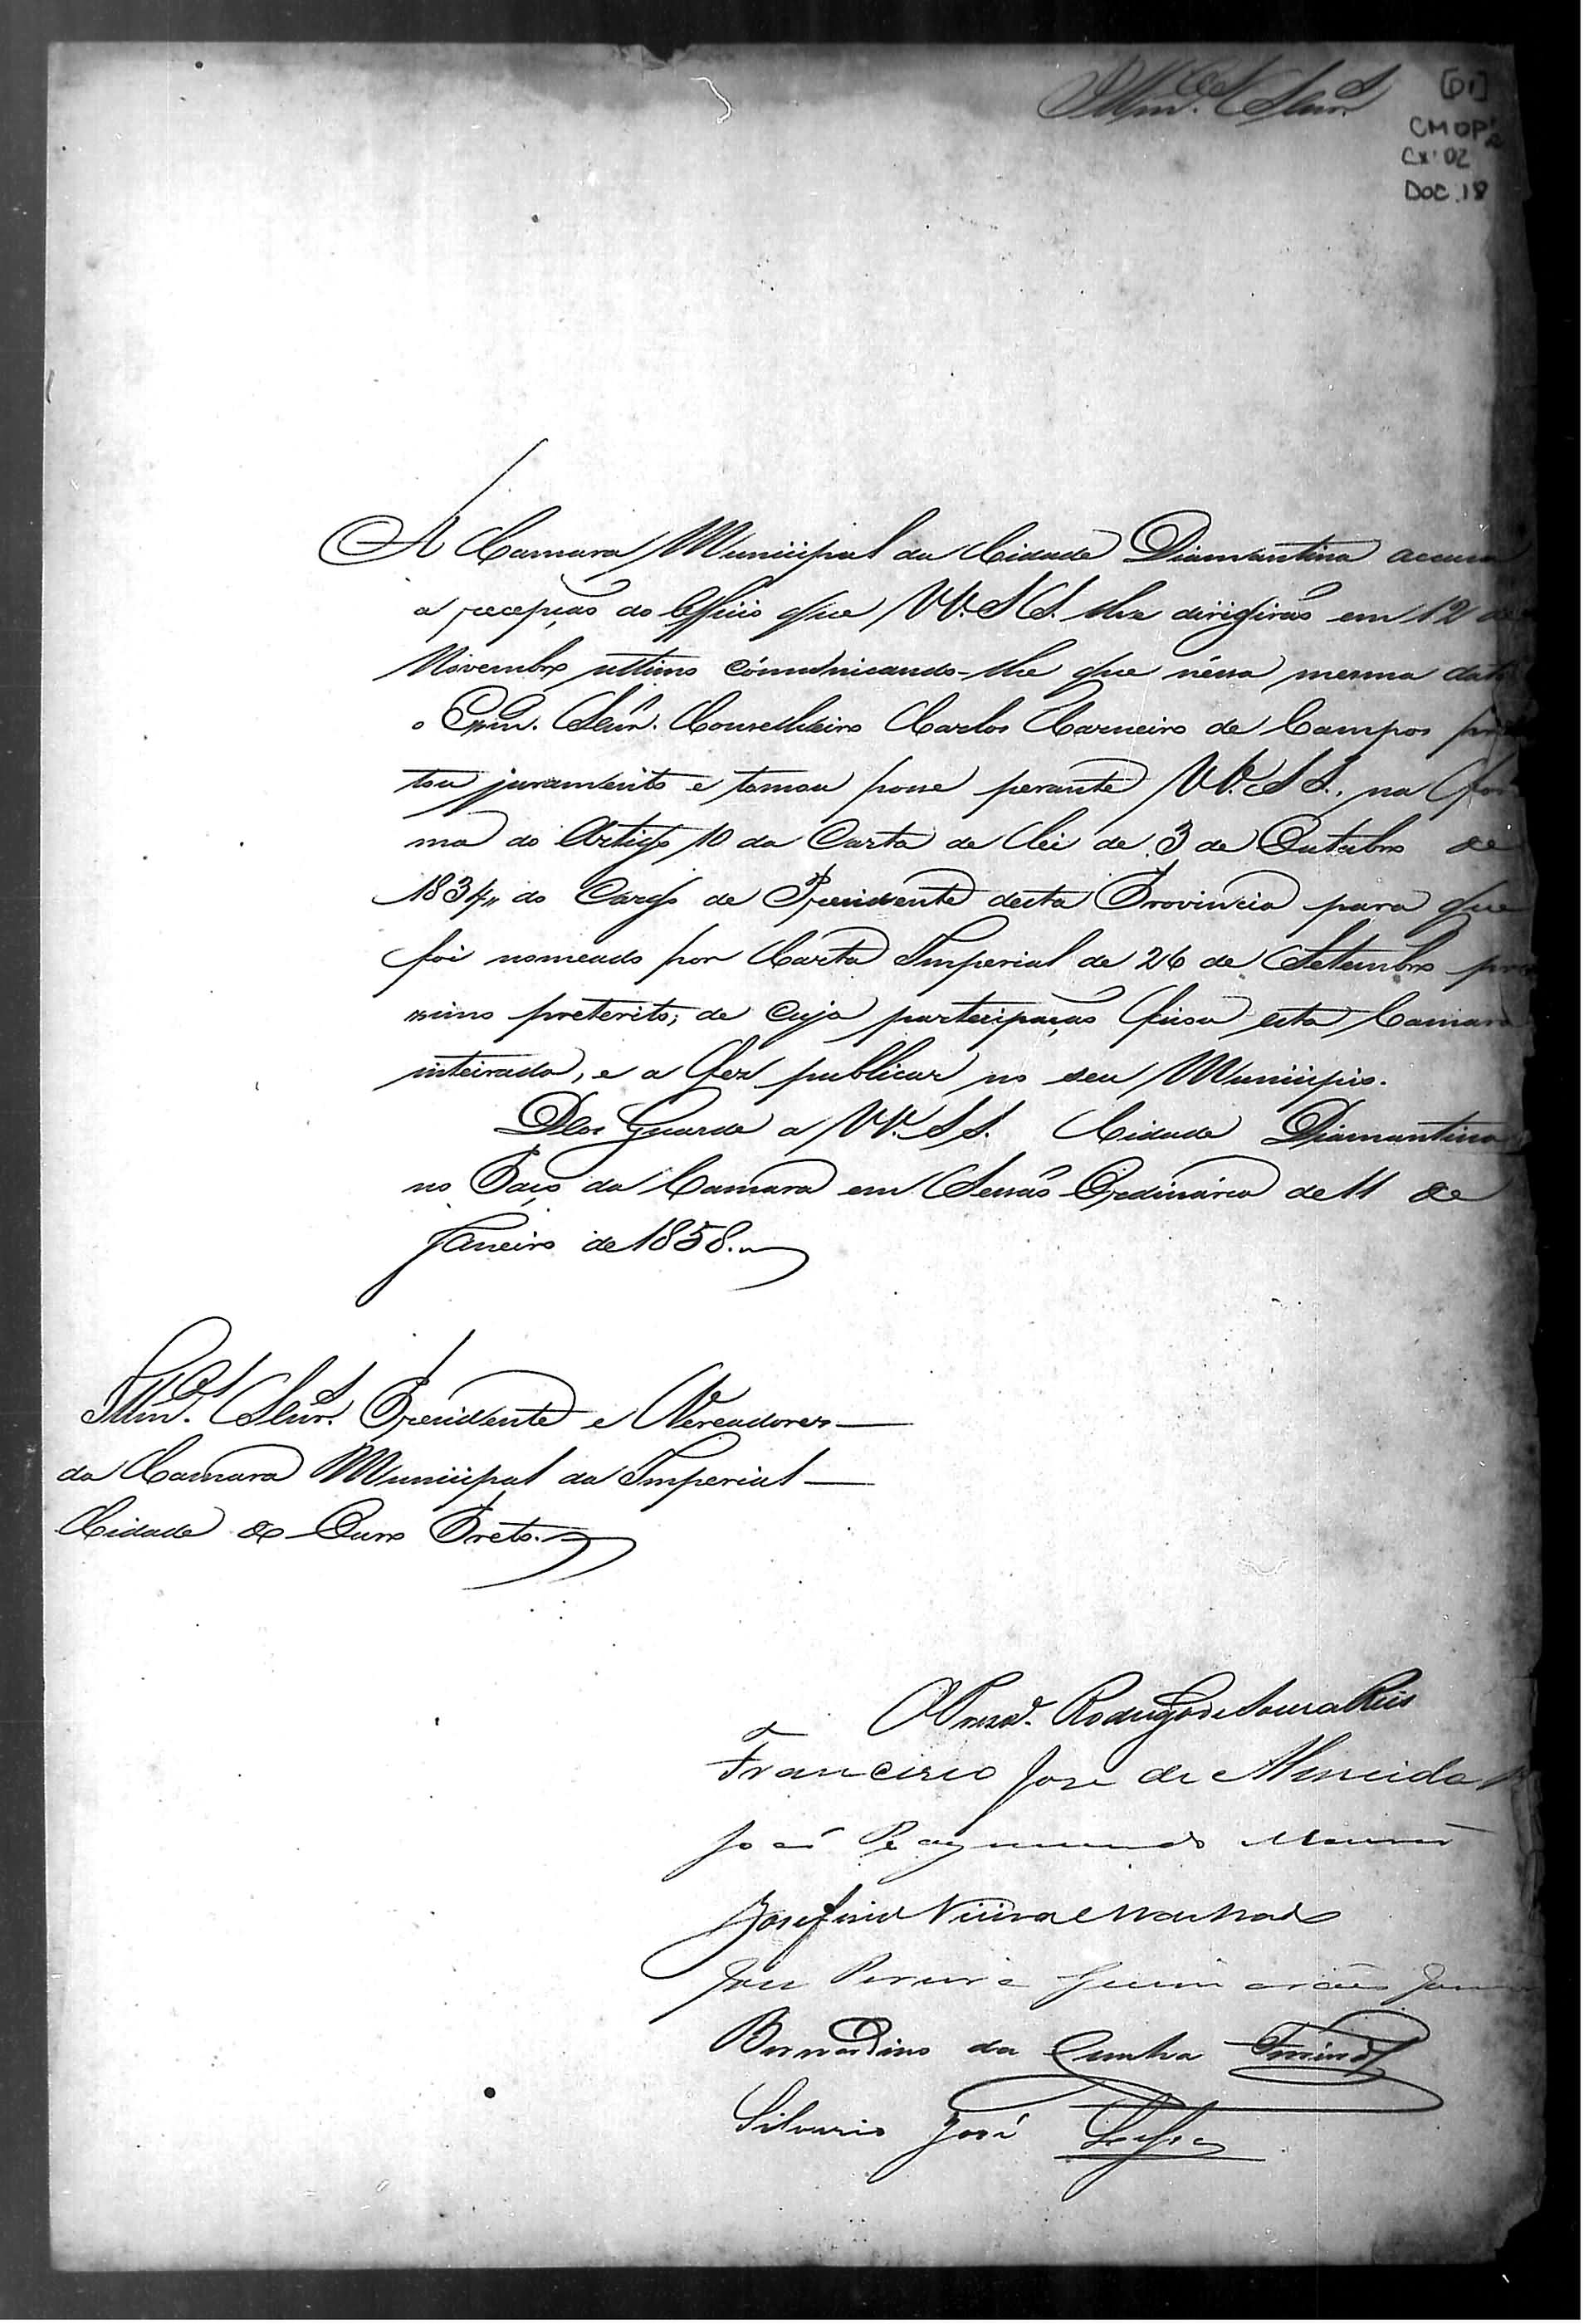 Illm.os Senr.s
[01]
CMOP
Cx. 02
DOC. 18
A Camara Municipal da Cidade Diamantina accusa
a recepção do Officio que VV. SS. lhe dirigirão em 12 de
Novembro ultimo communicando-lhe que néssa mesma data
o Exm. Senr. Conselheiro Carlos Carneiro de Campos pres
tou juramento e tomou posse perante VV. SS., na for
ma do Artigo 10 da Carta de Lei de 3 de Outubro de
1834,, do Cargo de Presidente desta Provincia para que
foi nomeado por Carta Imperial de 26 de Setembro pro
ximo preterito; de cuja participação ficou esta Camara
inteirada, e a fez publicar no seu Municipio.
Deos Guarde a VV. SS. Cidade Diamantina
no Paço da Camara em Sessão Ordinaria de 11 de
Janeiro de 1858.
Illm.os Senr.s Presidente e Vereadores
da Camara Municipal da Imperial
Cidade de Ouro Preto.
O Presid.e Rodrigo de Souza Reis
Francisco José de Almeida
João Raymundo Mourão
Josefino Vieira Machado
José Pereira Guimarães
Bernardino da Cunha Ferreira
Silverio José Lessa